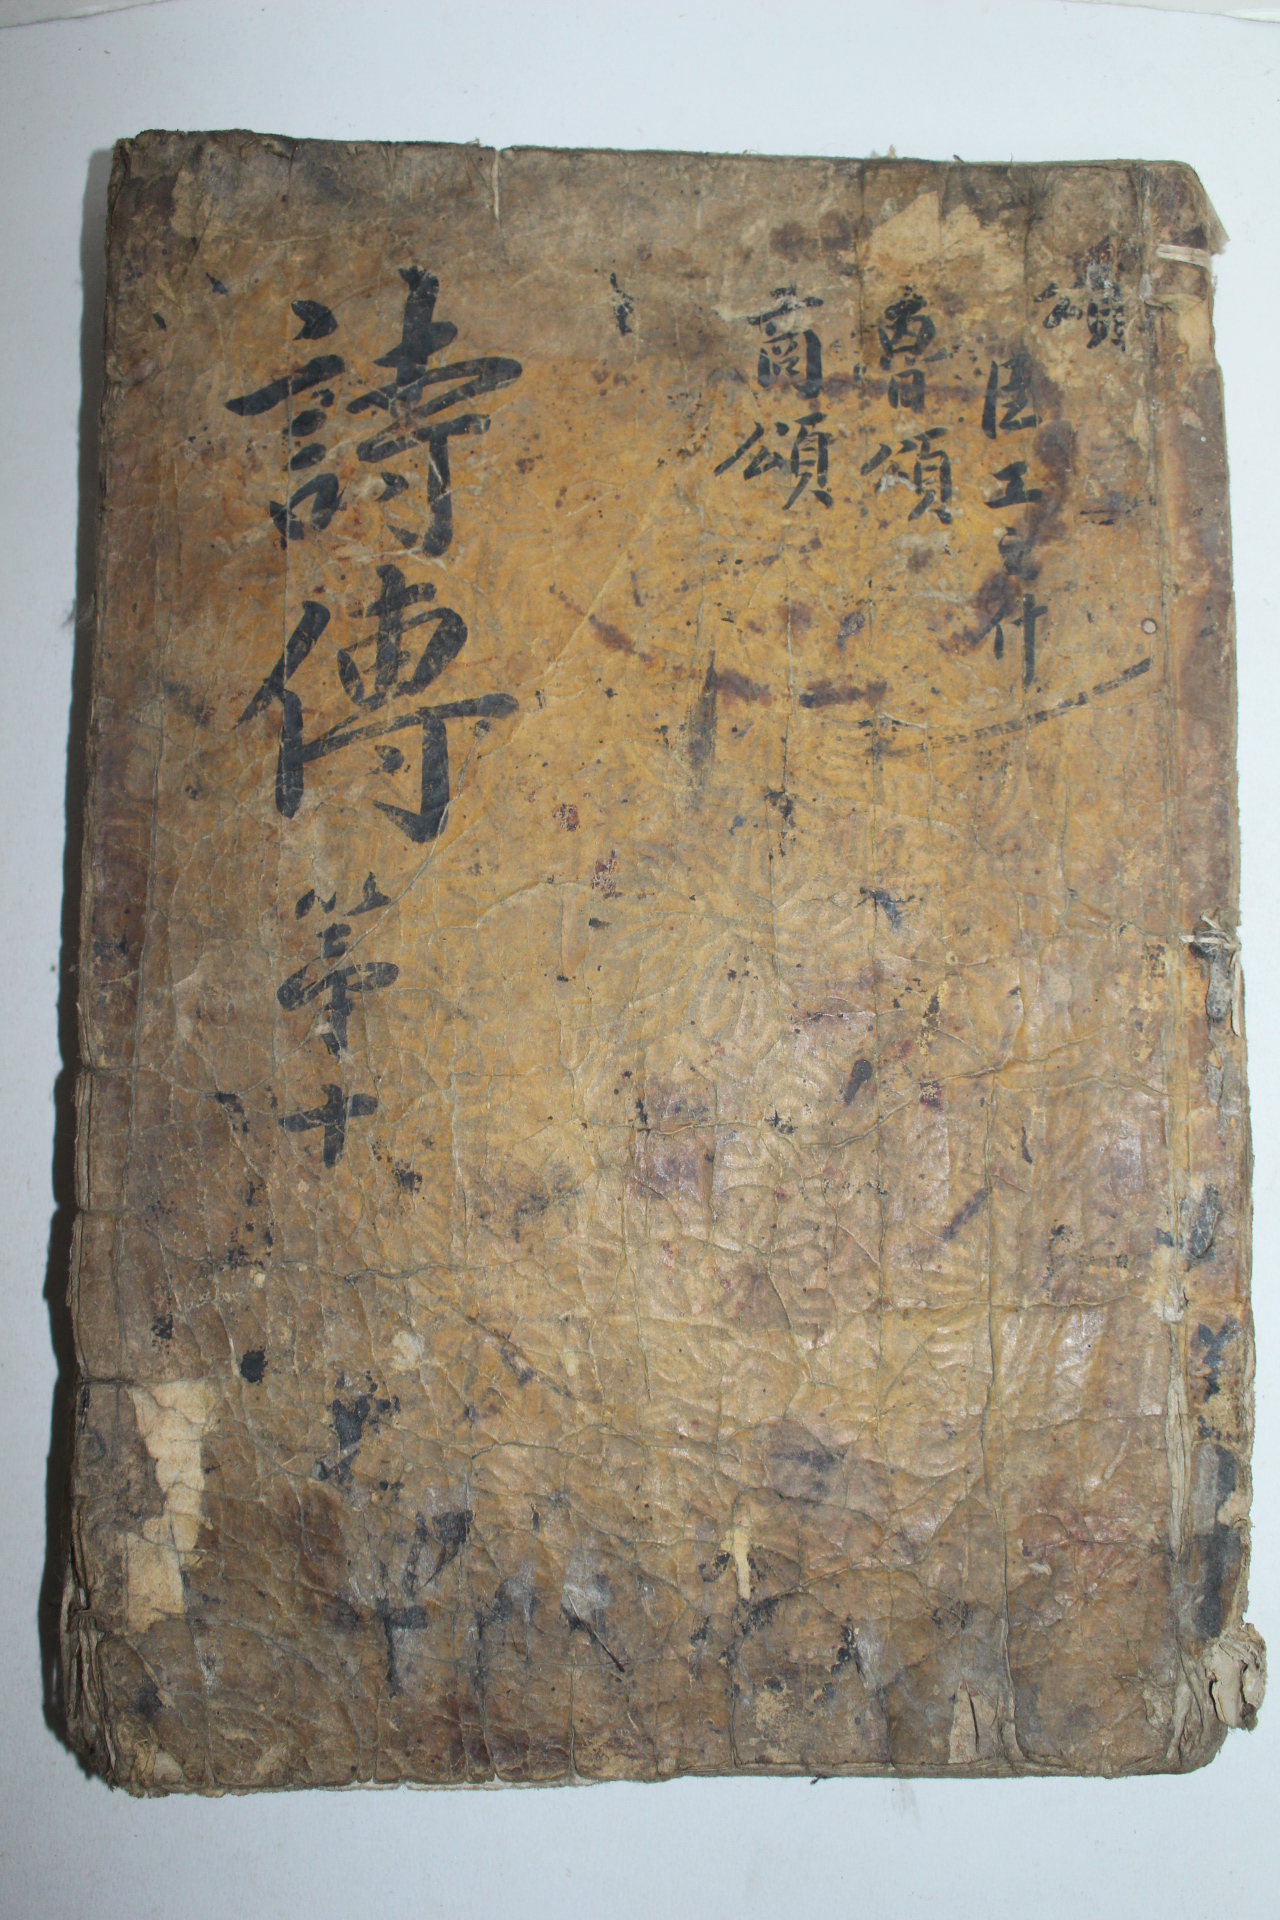 頌
臣工之什
魯頌
商頌
詩傳 第十